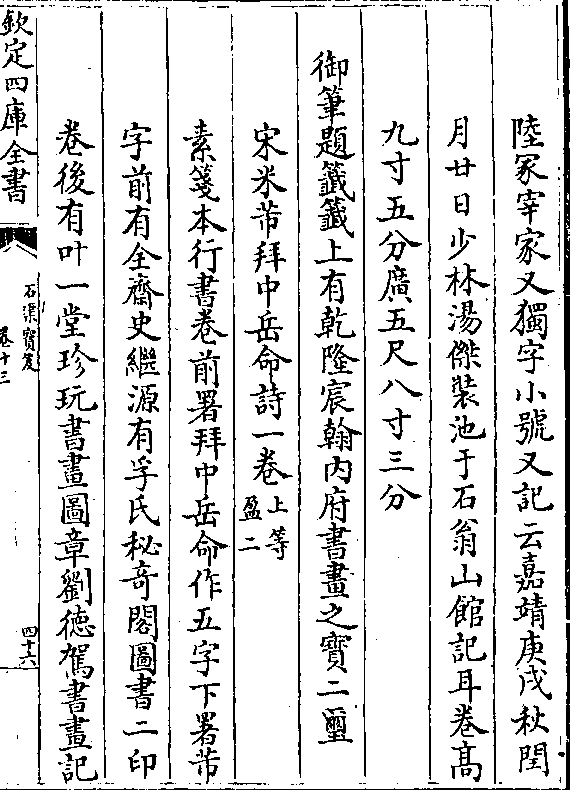 陸冢宰家又獨字小號又記云嘉靖庚戌秋閏
月廿日少林湯傑裝池于石翁山館記耳卷髙
九寸五分廣五尺八寸三分
御筆題籤籤上有乾隆宸翰内府書畫之寳二璽
宋米芾拜中岳命詩一卷上等盈二
素箋本行書卷前署拜中岳命作五字下署芾
字前有全齋史繼源有孚氏秘奇閣圖書二印
卷後有叶一堂珍玩書畫圖章劉徳駕書畫記
欽定四庫全書
石渠寳笈
卷十三
四十六